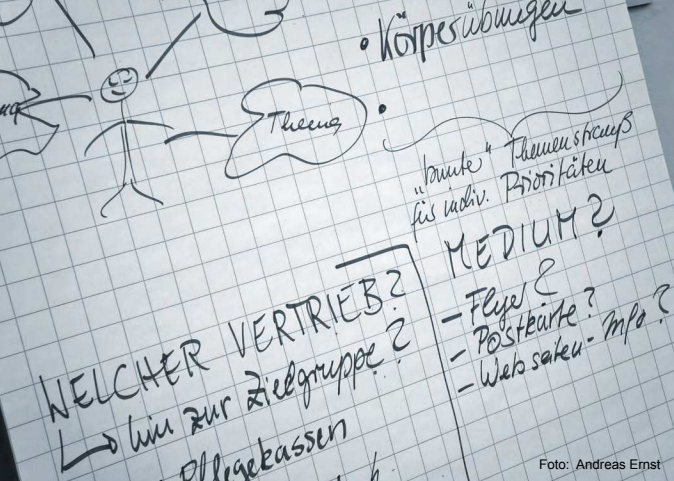 • Körperübungen
Thema
•
„bunter" Themenstrauß
für indiv. Prioritäten
MEDIUM?
- Flyer?
- Postkarte?
- Webseiten-Info?
WELCHER VERTRIEB?
↳ hin zur Zielgruppe?
Pflegekassen
Foto: Andreas Ernst